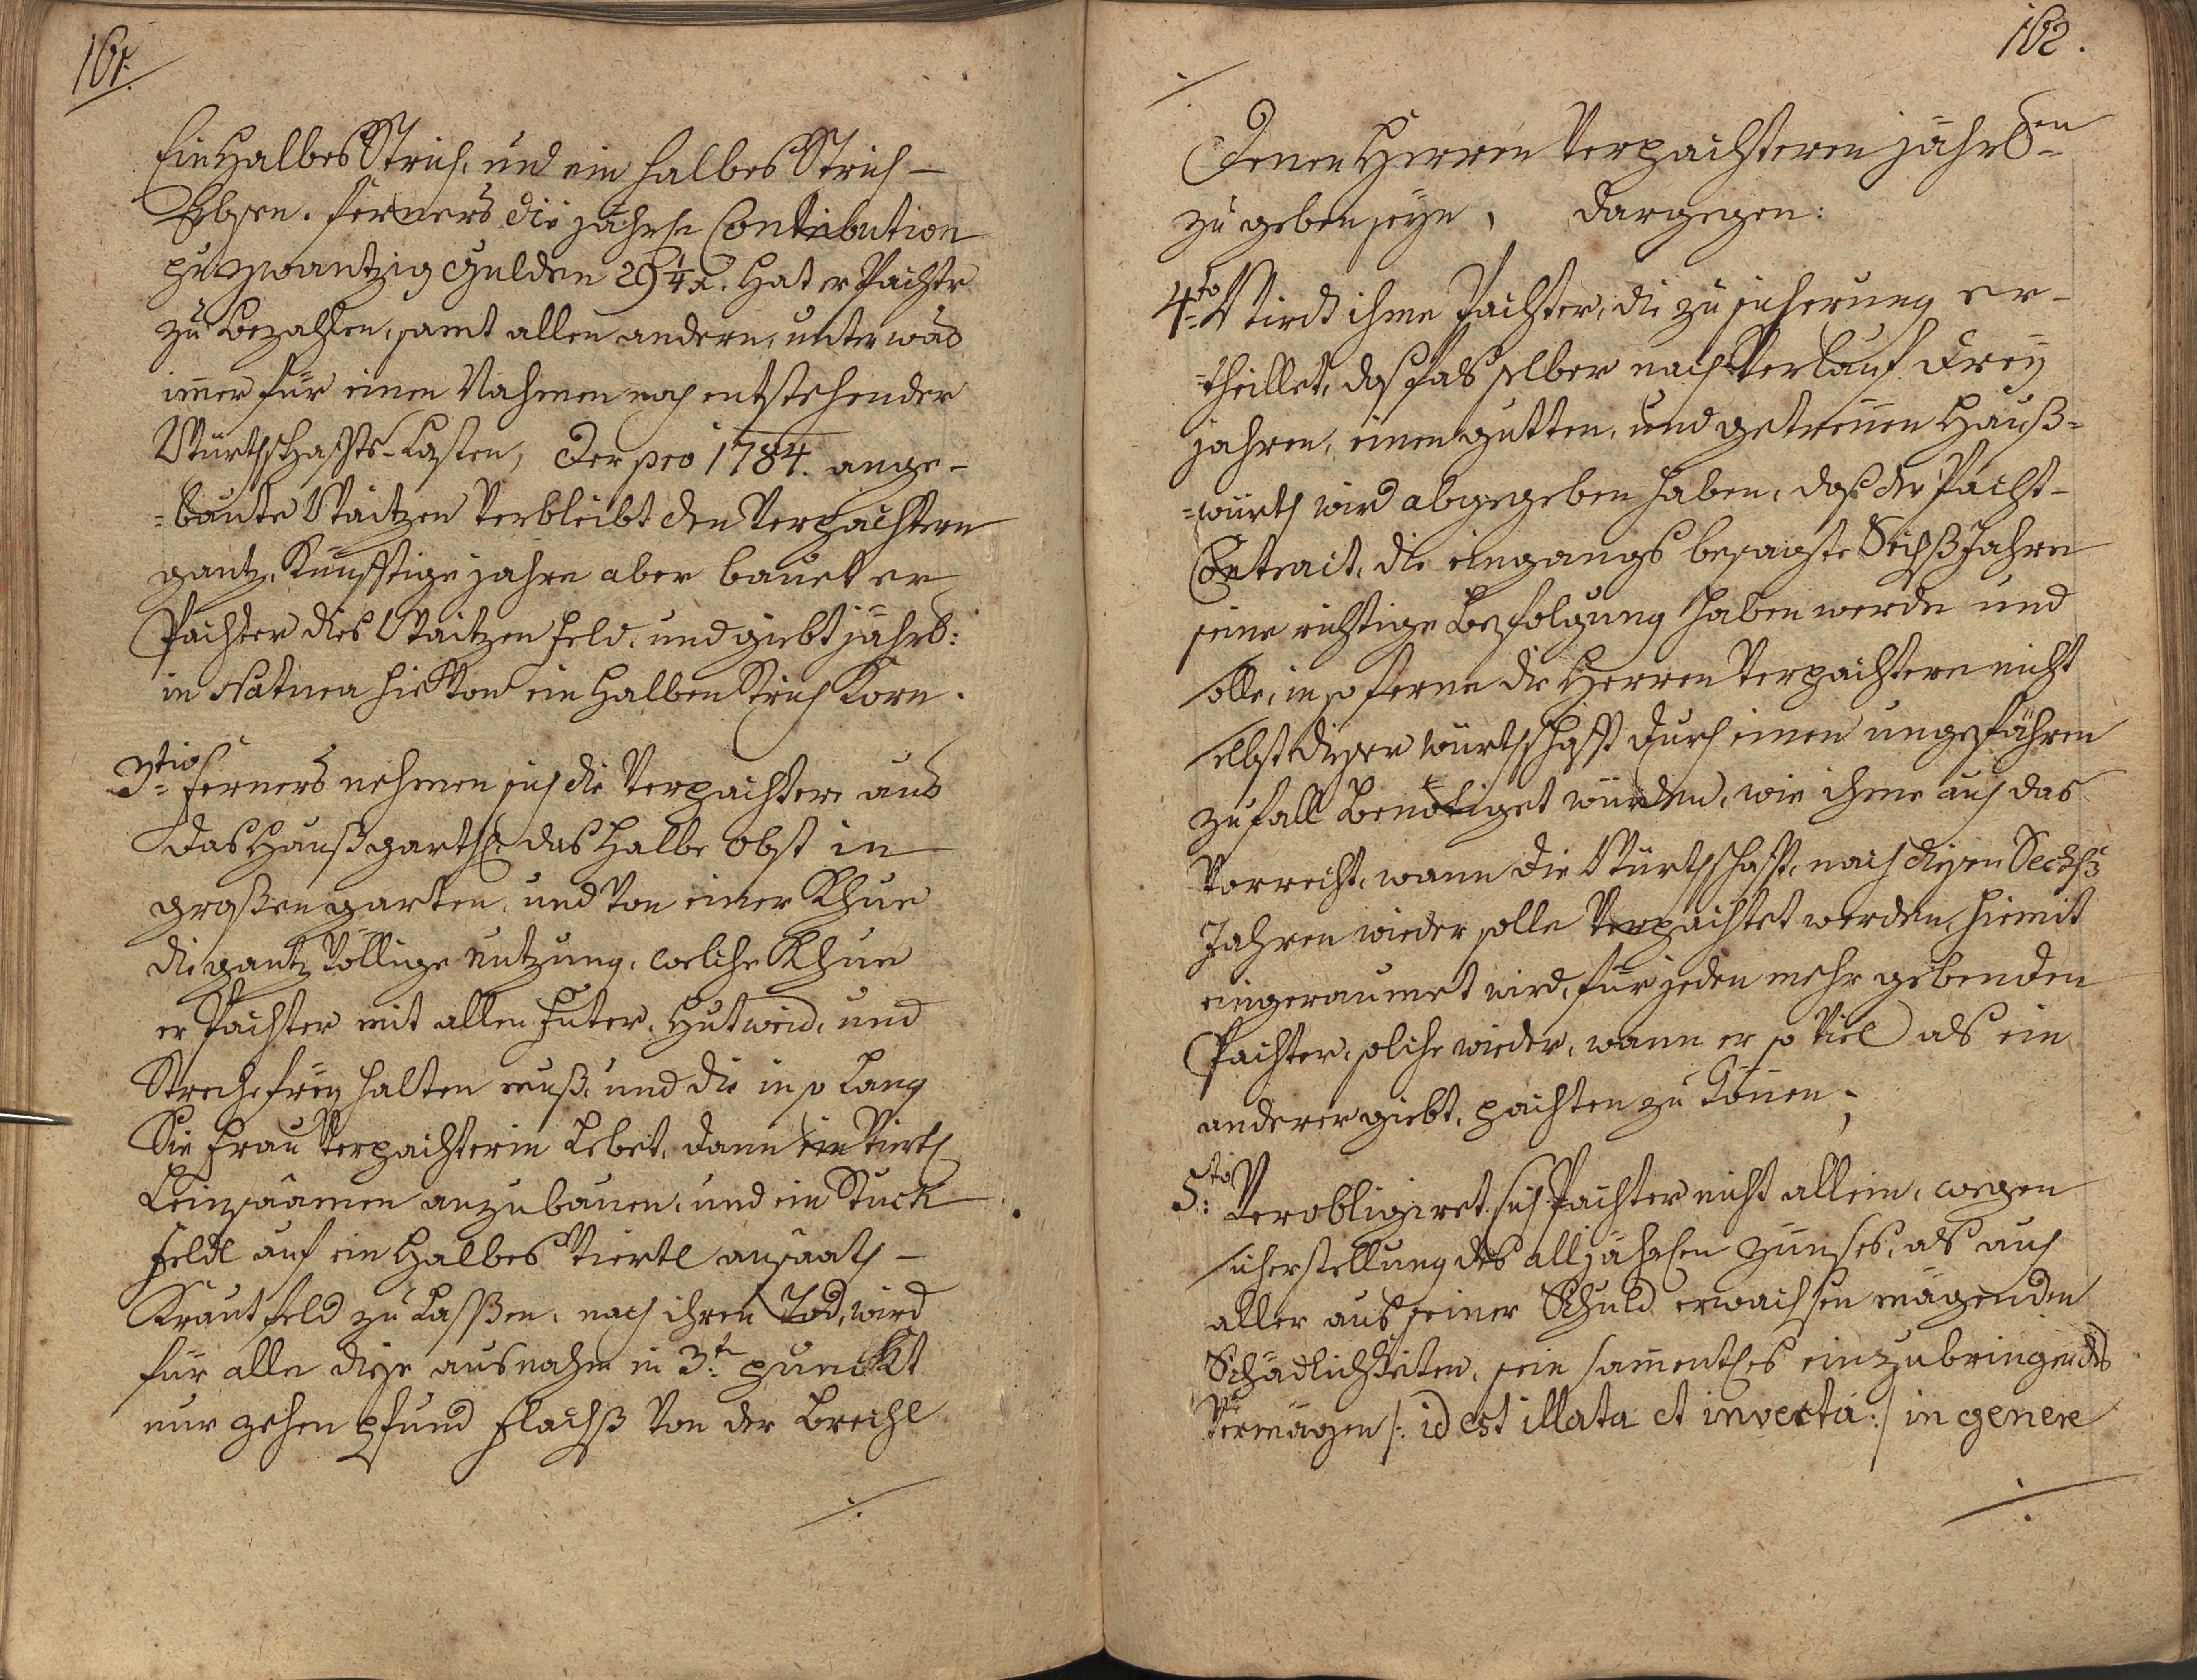 161.
Ein Halbes Strich, und ein halbes Strich –
Erbsen. ferners die jährl: Contribution
per zwantzig Gulden 29 1/4 x. Hat er Pachter
zu bezahlen, samt allen andern, unter was
im̄er für einen Nahmen noch entstehender
Würthschaffts-Lasten, Der pro 1784. ange-
=baute Waitzen Verbleibt den Verpachtern
gantz, Künfftige jahre aber bauet er
Pachter dies Waitzen feld, und giebt jährl:
in Natura hievon ein Halben Strich Korn.
3tio Ferners nehmen sich die Verpachtere aus
das Haußgartl, das halbe obst in
großen garten, und von einer Khue
die gantz völlige nutzung, welche Khue
er Pachter mit allen Futer, Hutweid, und
Streche freÿ halten muß, und die in so lang
Sie Frau Verpachterin Lebet, dann ein viertl
Leinsaamen anzubauen, und ein Stuck
Feldl auf ein Halbes Viertl ansaath –
Krautfeld zu Lassßen, nach ihren Tod, wird
für alle diese ausnahm in 3.ten punckt
nur zehen pfund Flachß von der Brechl
./.
162.
./.
Denen Herren Verpachteren jährlen
zu geben seÿn, dargegen:
4to Wird ihme Pachter, die zusicherung er-
=theillet, daß falß selber nach Verlauf dreÿ
jahren, einen gutten, und getreuen Hauß-
=würth wird abgegeben haben, daß der Pacht-
Contract, die eingangs besagte Sechß Jahre
seine richtige Befolgung haben werde und
solle, in so ferne die Herren Verpachtere nicht
selbst dieser würthschafft durch einen ungefähren
zufall Benötiget würden, wie ihme auch das
Vorrecht, wann die Würthschafft, nach diesen Sechß
Jahren wieder solle Verpachtet werden, hiemit
eingeraumet wird, für jeden mehr gebenden
Pachter, solche wieder, wann er so viel als ein
anderer giebt, pachten zu kön̄en;
5to: Verobligiret sich Pachter nicht allein, wegen
sicherstellung des alljährlen Zünses, als auch
aller aus seiner Schuld erwachsen mögenden
Schädlichkeiten, sein sam̄entles einzubringendes
Vermögen /: id est illata et invecta :/ in genere
./.